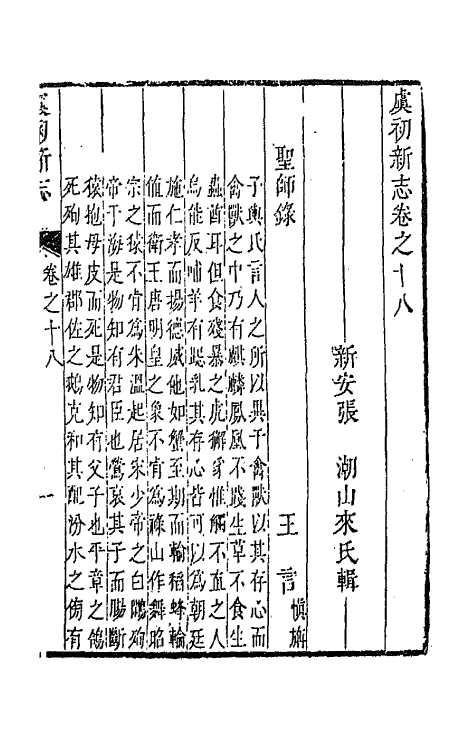 虞初新志卷之十八
新安張　潮山來氏輯
聖師錄
王　言慎旃
子輿氏言人之所以異于禽獸以其存心而
禽獸之中乃有麒麟鳳凰不踐生草不食生
蟲酋耳但食殘暴之虎獬豸惟觸不直之人
烏能反哺羊有跪乳其存心皆可以爲朝廷
施仁孝而揚德威他如蟹至期而輸稻蜂輪
值而衛王唐明皇之象不肯爲祿山作舞昭
宗之猿不肯爲朱溫起居宋少帝之白鷴殉
帝于海是物知有君臣也鶯哀其子而腸斷
猿抱母皮而死是物知有父子也平章之鴿
死殉其雄郡佐之鵝克和其配汾水之鴈有
虞初新志
卷之十八
一